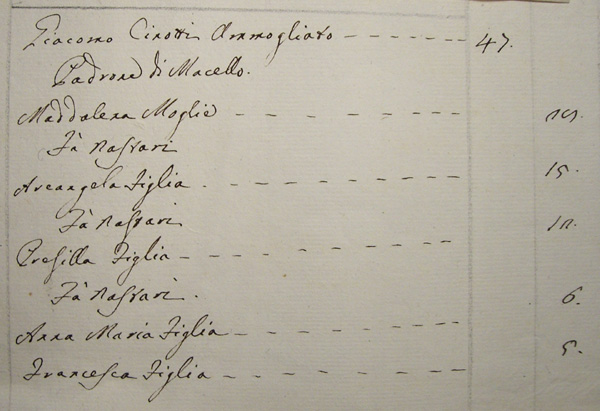 Giacomo Cinotti Ammogliato - - - - - - - 47.
Padrone di Macello.
Maddalena Moglie - - - - - - -
Fà Nastari
Arcangela Figlia . - - - - - - - 15.
Fà Nastari
Presilla Figlia - - - - - - -
Fà Nastari .
Anna Maria Figlia - - - - - - - 6.
Francesca Figlia - - - - - - - 5.